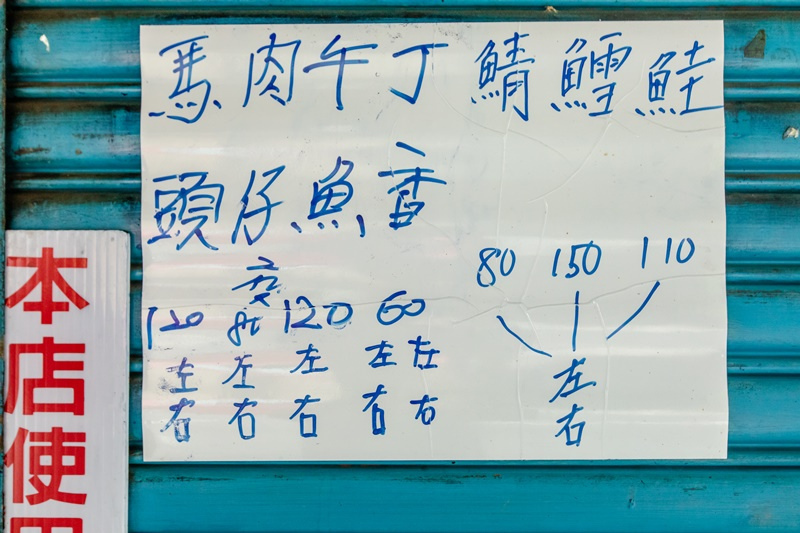 馬肉午丁鯖鱈鮭
頭仔魚香
80 150 110
120 120 60
左 左 左 左 左
右 右 右 右 右
左
右
本店使